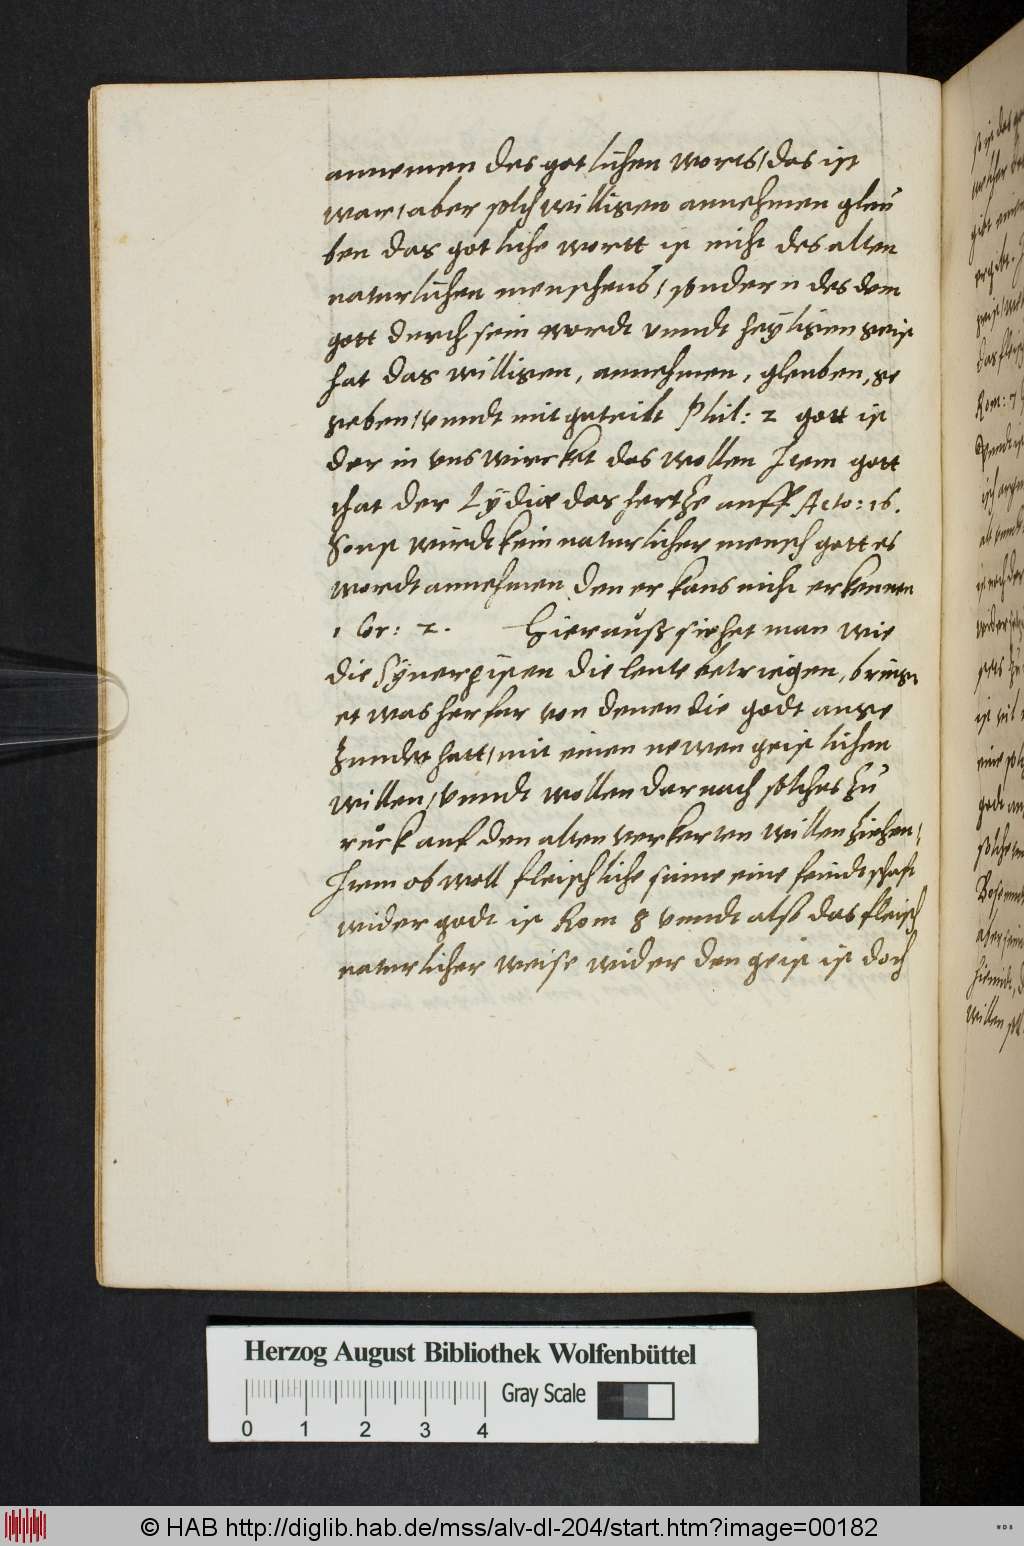 annemen des gotlichen worts / das ist
war / aber solch willigen annehmen glau
ben das gotliche wortt ist nicht des alten
naturlichen menschens / sondern des dem
gott durch sein wordt unndt heyligen geist
hat das willigen, annehmen, glauben, ge
geben / unndt mit geteilt Phil: 2 gott ist
der in uns wircket das wollen Item gott
that der Lydiæ das hertze auff Acto: 16.
Sonst wurdt kein naturlicher mensch gottes
wordt annehmen den er kans nicht erkennen
1 Cor: 2. Hierauß siehet man wie
die Synergisten die leute betriegen, bringen
etwas herfur von denen die godt ange
zundet hatt / mit einen newen geistlichen
willen / unndt wollen darnach solches zu
ruck auf den alten verkerten willen ziehen /
Item ob woll fleischliche sinne eine feindtschaft
wider godt ist Rom 8 unndt also das fleisch
naturlicher weise wider den geist ist doch
Herzog August Bibliothek Wolfenbüttel
Gray Scale
0 1 2 3 4
© HAB http://diglib.hab.de/mss/alv-dl-204/start.htm?image=00182